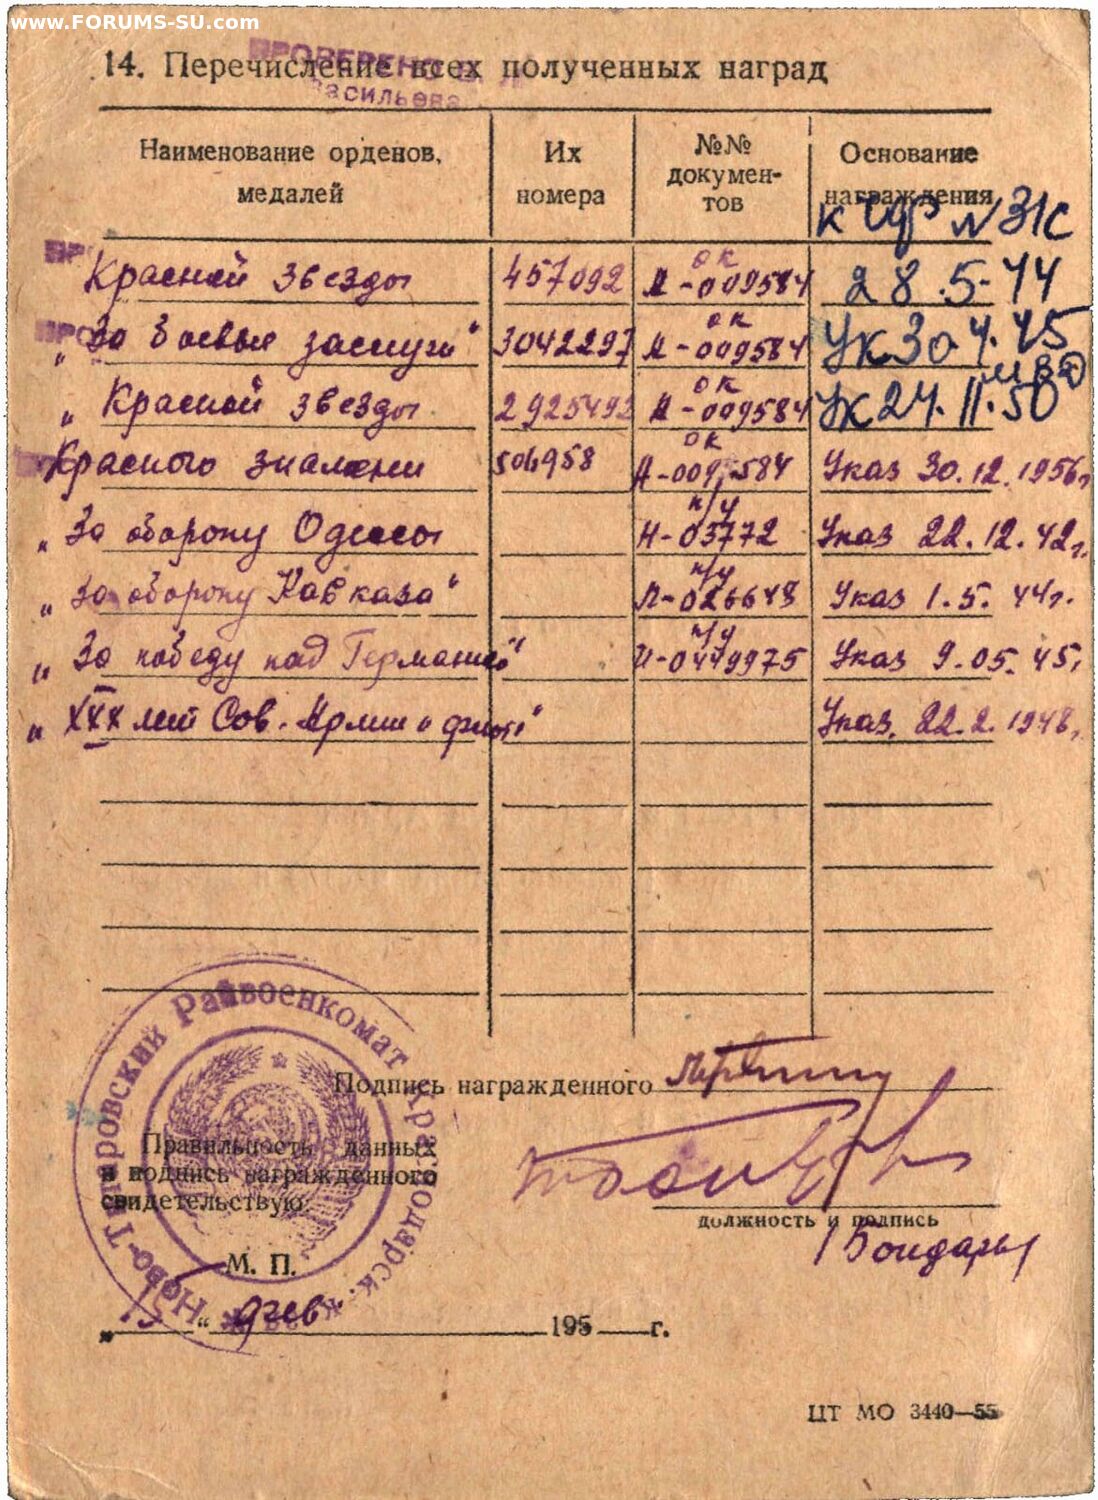 www.FORUMS-SU.com
ПРОВЕРЕНО
14. Перечисление всех полученных наград
Васильева
Наименование орденов, медалей
Их номера
№№ докумен-тов
Основание награждения
к ЧФ N 31с
Красной звезды 457092 ок А-009584 28.5-44
"За боевые заслуги" 3042297 ок А-009584 Ук 30 4.45
Красной звезды 2925492 ок А-009584 Ук 24.11.50
Красного знамени 506958 ок А-009584 Указ 30.12.1956г
"За оборону Одессы п/у Н-03772 Указ 22.12.42г.
"За оборону Кавказа" п/у Л-026648 Указ 1.5.44г.
"За победу над Германией" п/у И-0449975 Указ 9.05.45
"XXX лет Сов. Армии и флота" Указ 22.2.1948г
Подпись награжденного
Правильность данных
и подпись награжденного
свидетельствую:
должность и подпись
/Бондарь/
М. П.
Ново-Титаровский Райвоенкомат Краснодарск. края
"15" 195 г.
ЦТ МО 3440—55